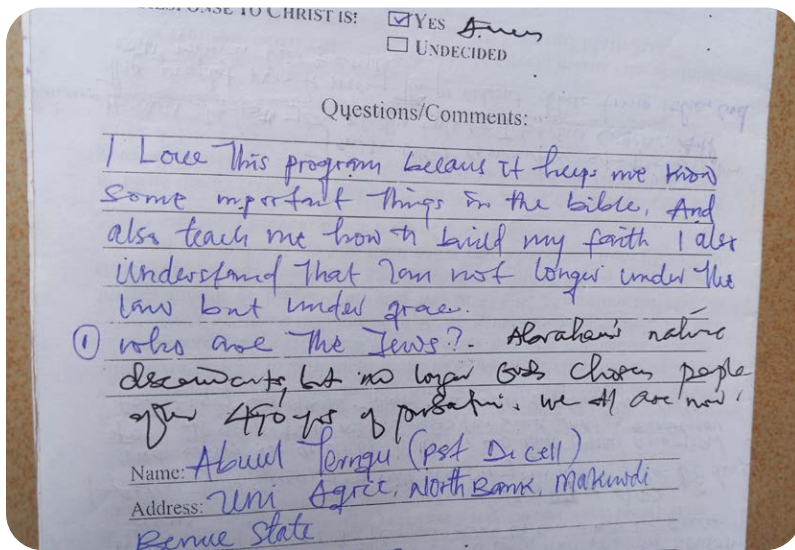 RESPONSE TO CHRIST IS: ☑ YES Amen
☐ UNDECIDED
Questions/Comments:
I Love This program becaus it heeps me know
Some important Things in the bible. And
also teach me how to build my faith I also
Understand That Iam not longer under the
law but under grace.
① who are The Jews?. Abraham's native
descendants, but no longer Gods chosen people
after 490 yrs of probation. we all are now!
Name: Abuul Terngu (Pst D. cell)
Address: Uni Agric, North Bank, Makurdi
Benue State